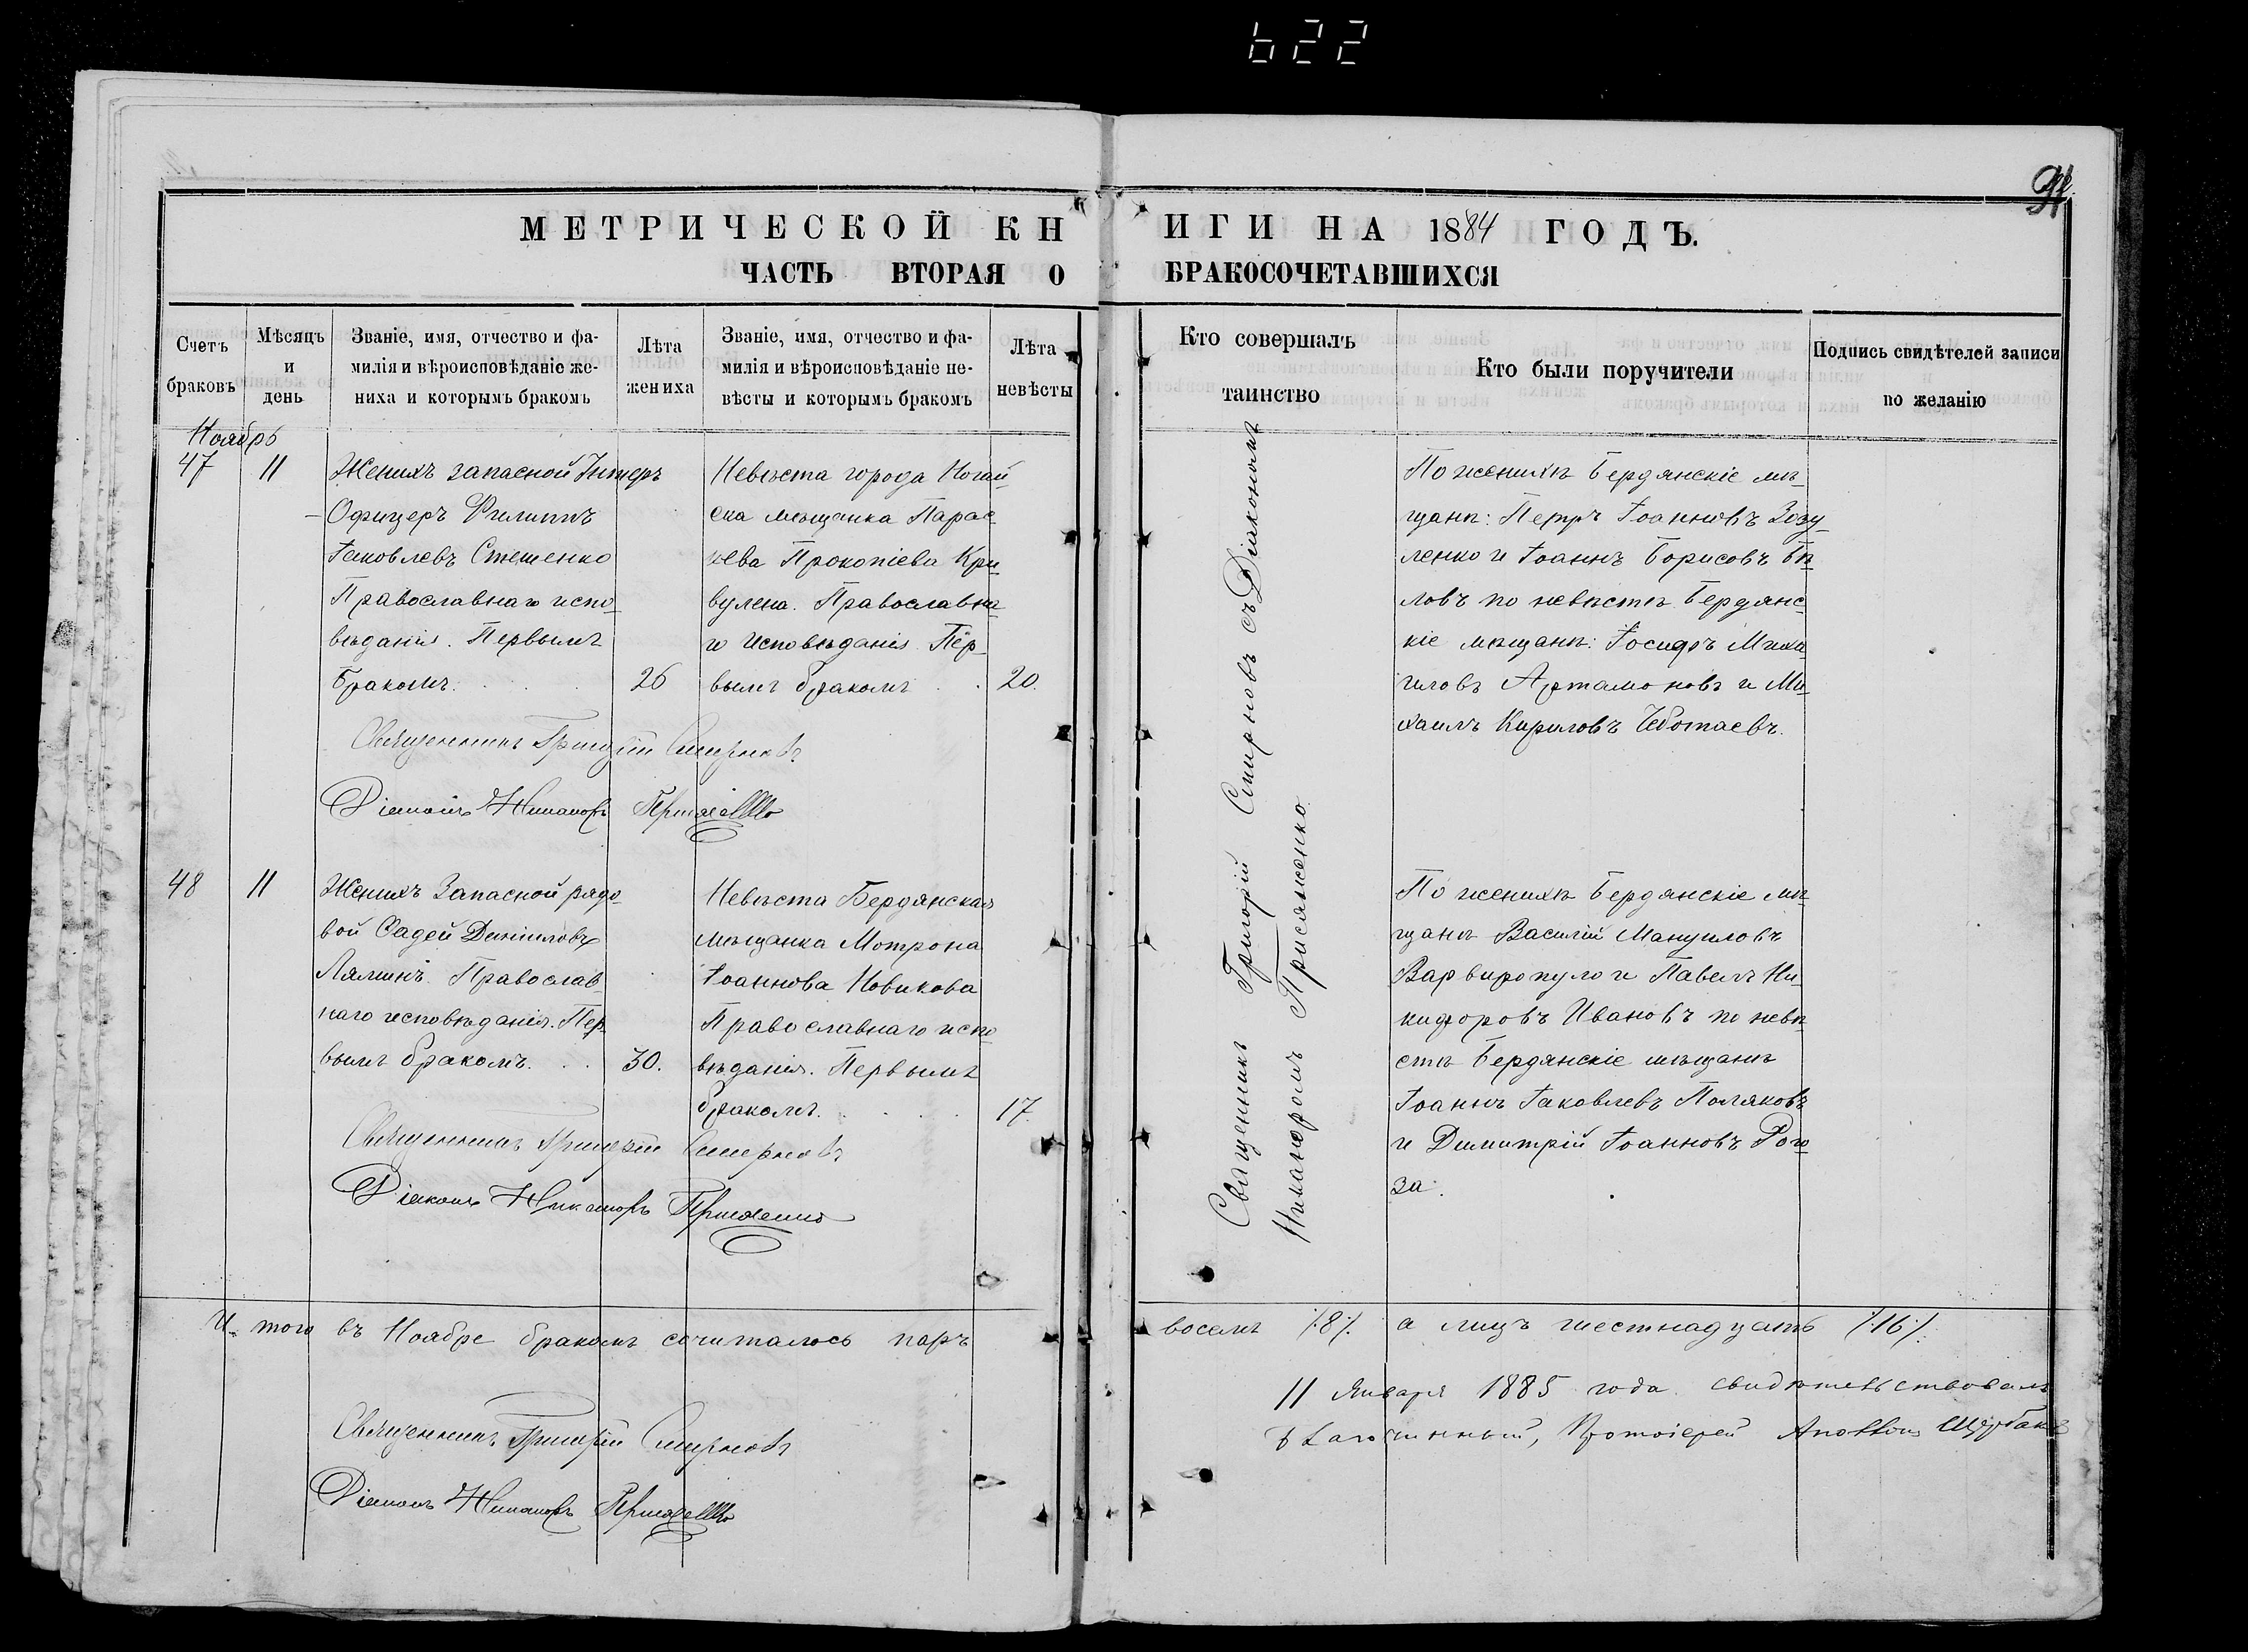 622
91
МЕТРИЧЕСКОЙ КНИГИ НА 1884 ГОДЪ.
ЧАСТЬ ВТОРАЯ О БРАКОСОЧЕТАВШИХСЯ
Счетъ браковъ
Мѣсяцъ и день
Званіе, имя, отчество и фа-
милія и вѣроисповѣданіе же-
ниха и которымъ бракомъ
Лѣта жениха
Званіе, имя, отчество и фа-
милія и вѣроисповѣданіе не-
вѣсты и которымъ бракомъ
Лѣта невѣсты
Кто совершалъ
таинство
Кто были поручители
Подпись свидѣтелей записи
по желанію
Ноябрь
47
11
Женихъ запасной Унтеръ
Офицеръ Филиппъ
Іаковлевъ Стешенко
Православнаго испо-
вѣданія. Первымъ
Бракомъ.
26
Невѣста города Ногай-
ска мѣщанка Парас-
кева Прокопіева Кри-
вулена. Православна-
го Исповѣданія Пер-
вымъ бракомъ
20.
Священникъ Григорій Смирновъ
Діаконъ Никаноръ Присяженко
Священникъ Григорій Смирновъ съ Діакономъ
Никаноромъ Присяженко
По женихѣ Бердянскіе мѣ-
щанѣ: Петръ Іоанновъ Зозу-
ленко и Іоаннъ Борисовъ Бѣ-
ловъ по невѣстѣ Бердянс-
кіе мѣщанѣ: Іосифъ Миха-
иловъ Артамоновъ и Ми-
хаилъ Кириловъ Чботаевъ.
48
11
Женихъ Запасной рядо-
вой Фадей Даніиловъ
Лялинъ. Православ-
наго исповѣданія. Пер-
вымъ бракомъ.
30.
Невѣста Бердянская
мѣщанка Мотрона
Іоаннова Новикова
Православнаго испо-
вѣданія. Первымъ
бракомъ.
17.
Священникъ Григорій Смирновъ
Діаконъ Никаноръ Присяженко
По женихѣ Бердянскіе мѣ-
щанѣ Василій Мануиловъ
Варвиропуло и Павелъ Ни-
кифоровъ Ивановъ по невѣ-
стѣ Бердянскіе мѣщанѣ
Іоаннъ Іаковлевъ Поляковъ
и Димитрій Іоанновъ Рого-
за.
И того въ Ноябре бракомъ сочиталось паръ восемъ /:8:/. а лицъ шестнадцать /:16:/.
Священникъ Григорій Смирновъ
Діаконъ Никаноръ Присяженко
11 Января 1885 года свидѣтельствовалъ
Благочинный, Протоіерей